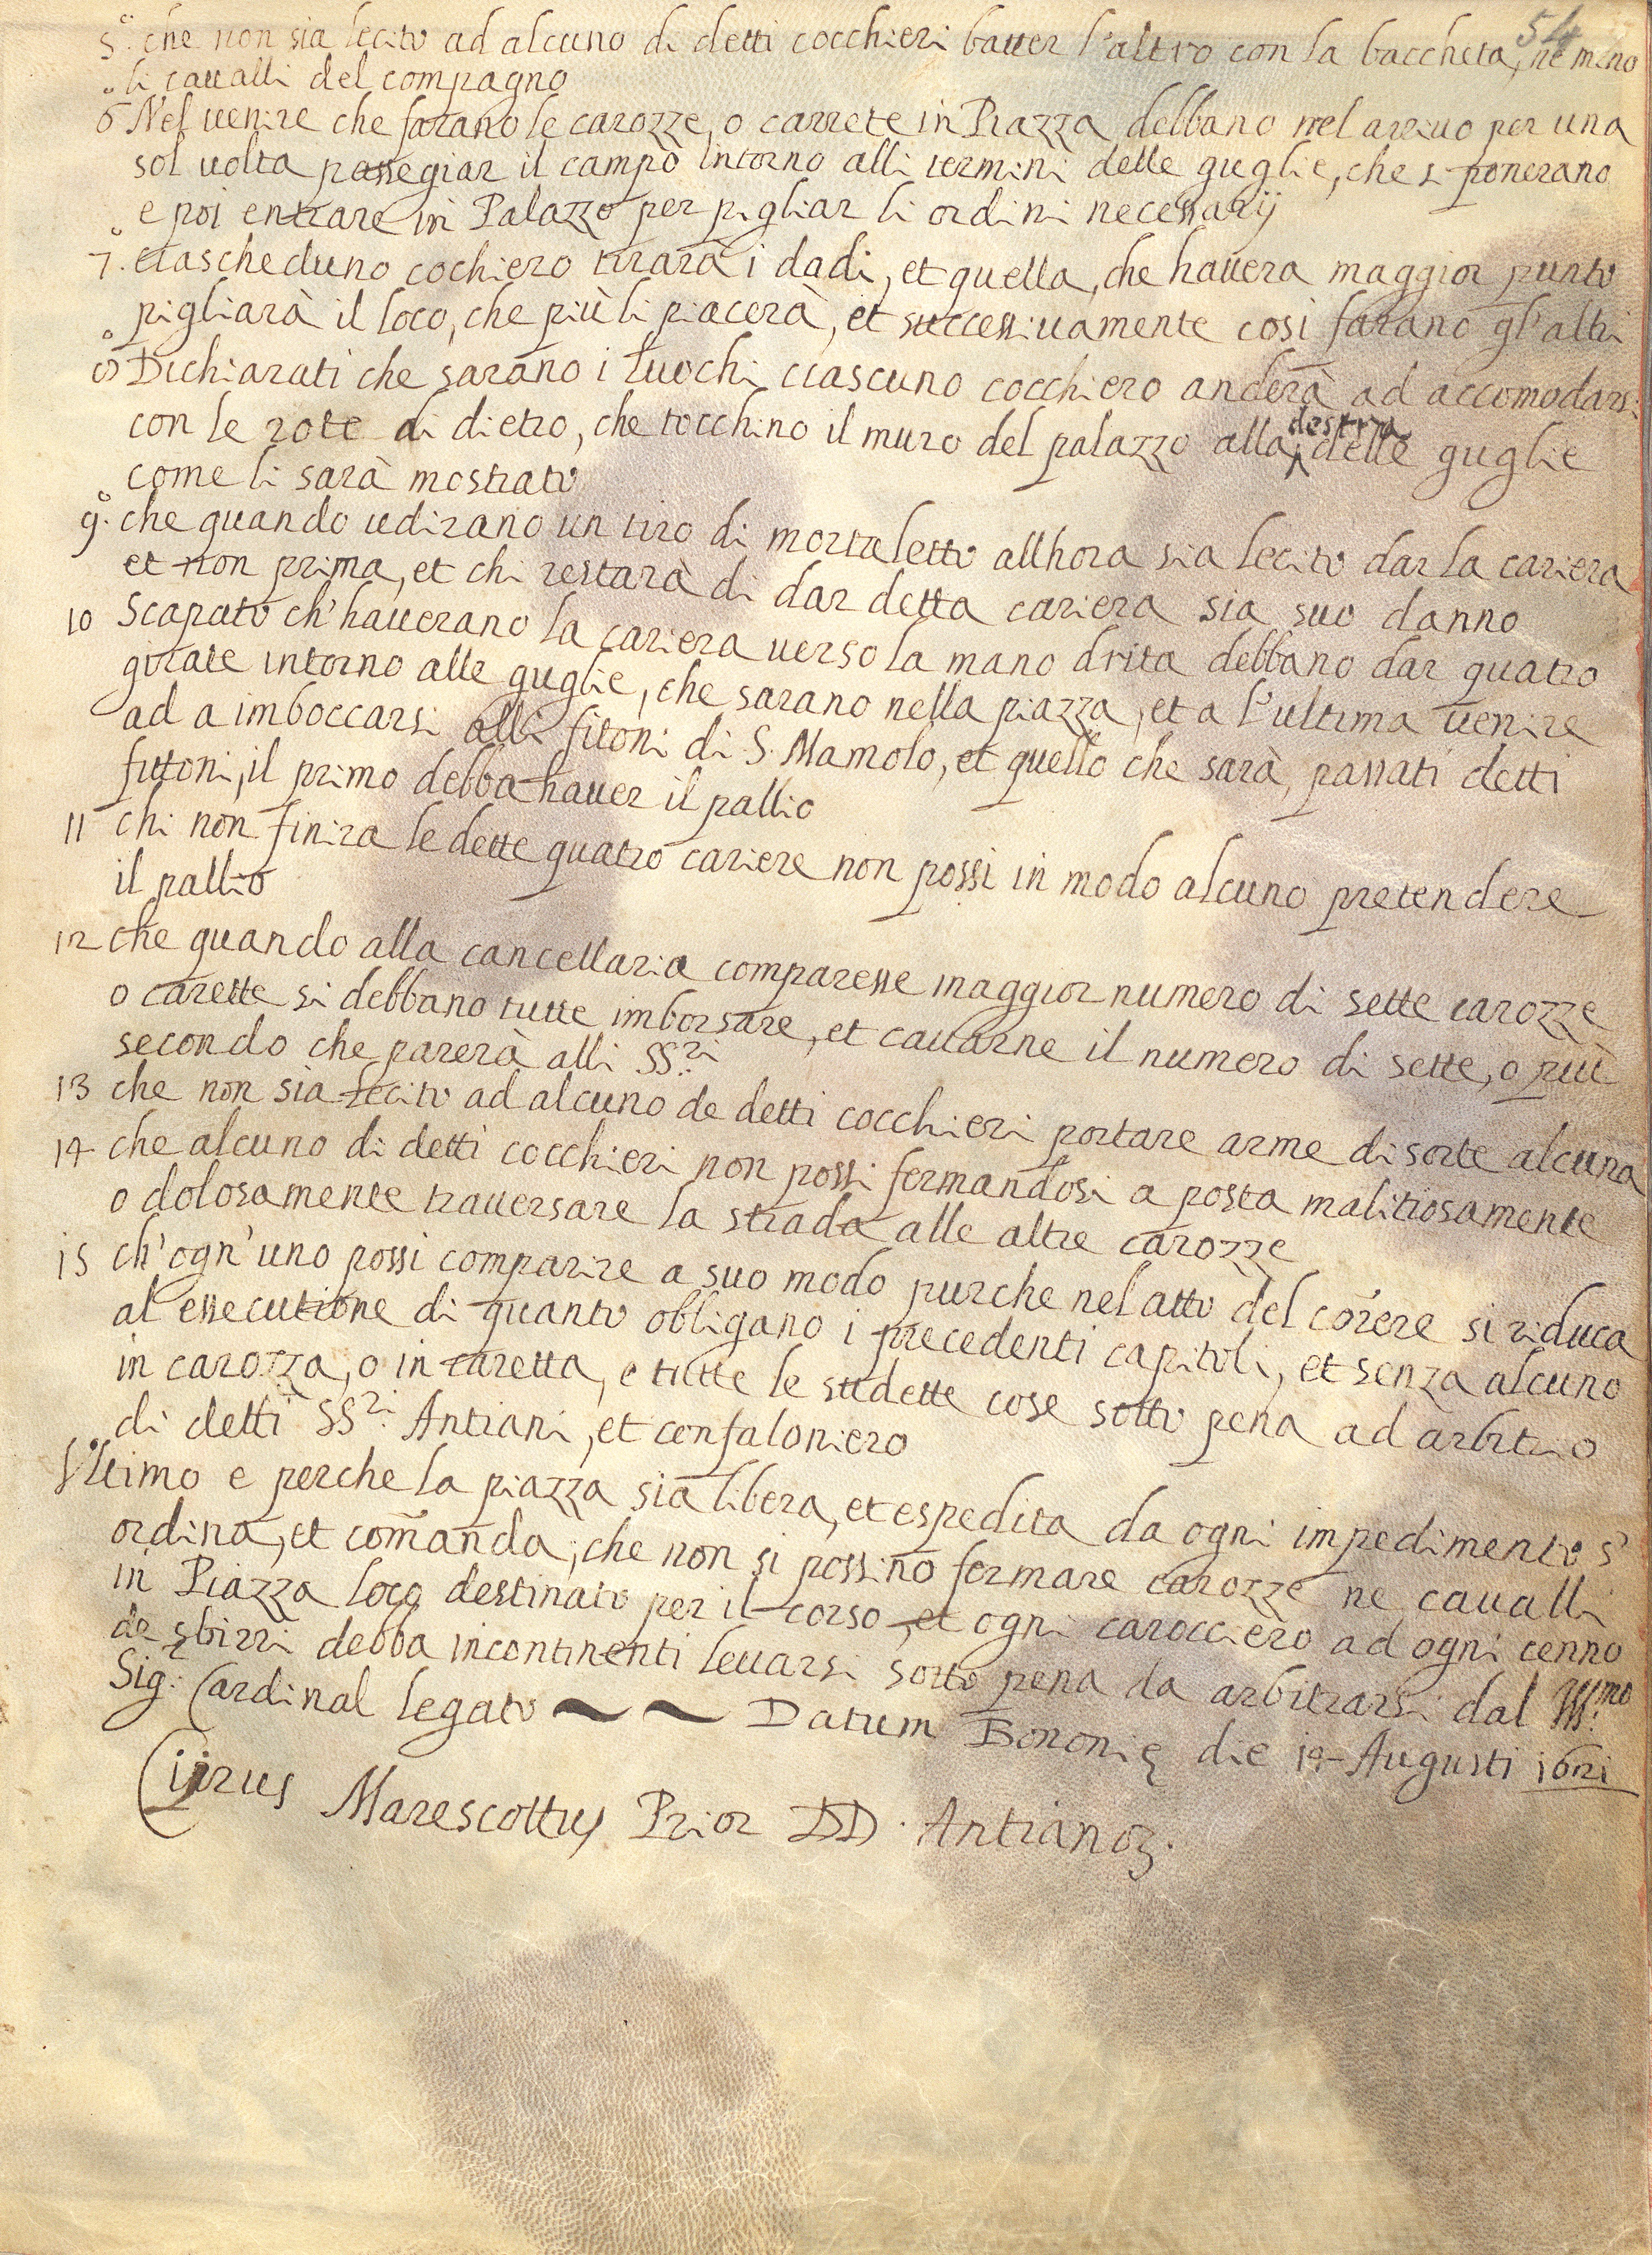 54
5.° che non sia lecito ad alcuno di detti cocchieri batter l'altro con la baccheta, ne meno
li cavalli del compagno
6° Nel uenire che farano le carozze, o carrete in Piazza debbano nel arriuo per una
sol uolta passegiar il campo intorno alli termini delle guglie, che si ponerano
e poi entrare in Palazzo per pigliar li ordini necessarij
7.° ciascheduno cochiero tirarà i dadi, et quella, che hauera maggior punto
pigliarà il loco, che più li piacerà, et successiuamente così farano gl'altri
8° Dichiarati che sarano i luochi ciascuno cocchiero anderà ad accomodarsi
con le rote di dietro, che tocchino il muro del palazzo alla destra delle guglie
come li sarà mostrato
9.° che quando udirano un tiro di mortaletto allhora sia lecito dar la cariera
et non prima, et chi restarà di dar detta cariera sia suo danno
10 Scapato ch'hauerano la cariera uerso la mano drita debbano dar quatro
girate intorno alle guglie, che sarano nella piazza, et a l'ultima uenire
ad a imboccarsi alli fitoni di S. Mamolo, et quello che sarà, passati detti
fittoni, il primo debba hauer il pallio
11 chi non finira le dette quatro cariere non possi in modo alcuno pretendere
il pallio
12 che quando alla cancellaria comparesse maggior numero di sette carozze
o carette si debbano tutte imborsare, et cauarne il numero di sette, o più
secondo che parerà alli SS.ri
13 che non sia lecito ad alcuno de detti cocchieri portare arme di sorte alcuna
14 che alcuno di detti cocchieri non possi fermandosi a posta malitiosamente
o dolosamente trauersare la strada alle altre carozze
15 ch'ogn'uno possi comparire a suo modo purche nel atto del corere si riduca
al essecutione di quanto obligano i precedenti capitoli, et senza alcuno
in carozza, o in caretta, e tutte le sudette cose sotto pena ad arbitrio
di detti SS.ri Antiani, et confaloniero
Vltimo e perche la piazza sia libera, et espedita da ogni impedimento s'
ordina, et comanda, che non si possino fermare carozze ne caualli
in Piazza loco destinato per il corso, et ogni carocciero ad ogni cenno
de sbirri debba incontinenti leuarsi sotto pena da arbitrarsi dal Ill.mo
Sig.r Cardinal legato Datum Bononię die 14 Augusti 1621
Cijrus Marescottus Prior DD. Antianoꝝ.